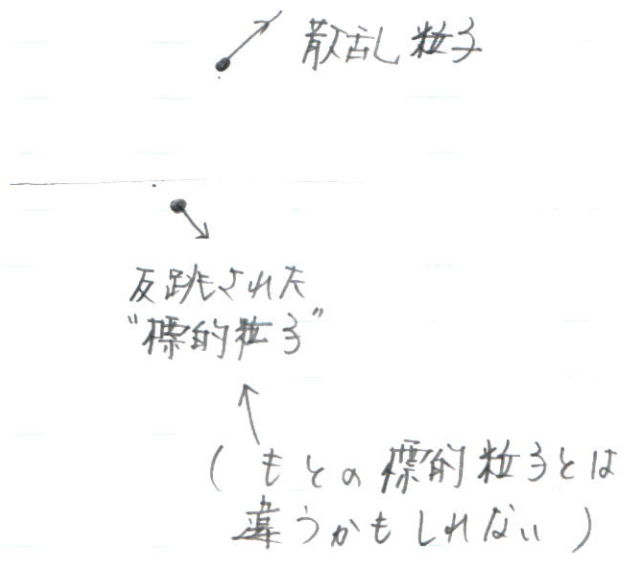 散乱粒子
反跳された
"標的粒子"
(もとの標的粒子とは
違うかもしれない)